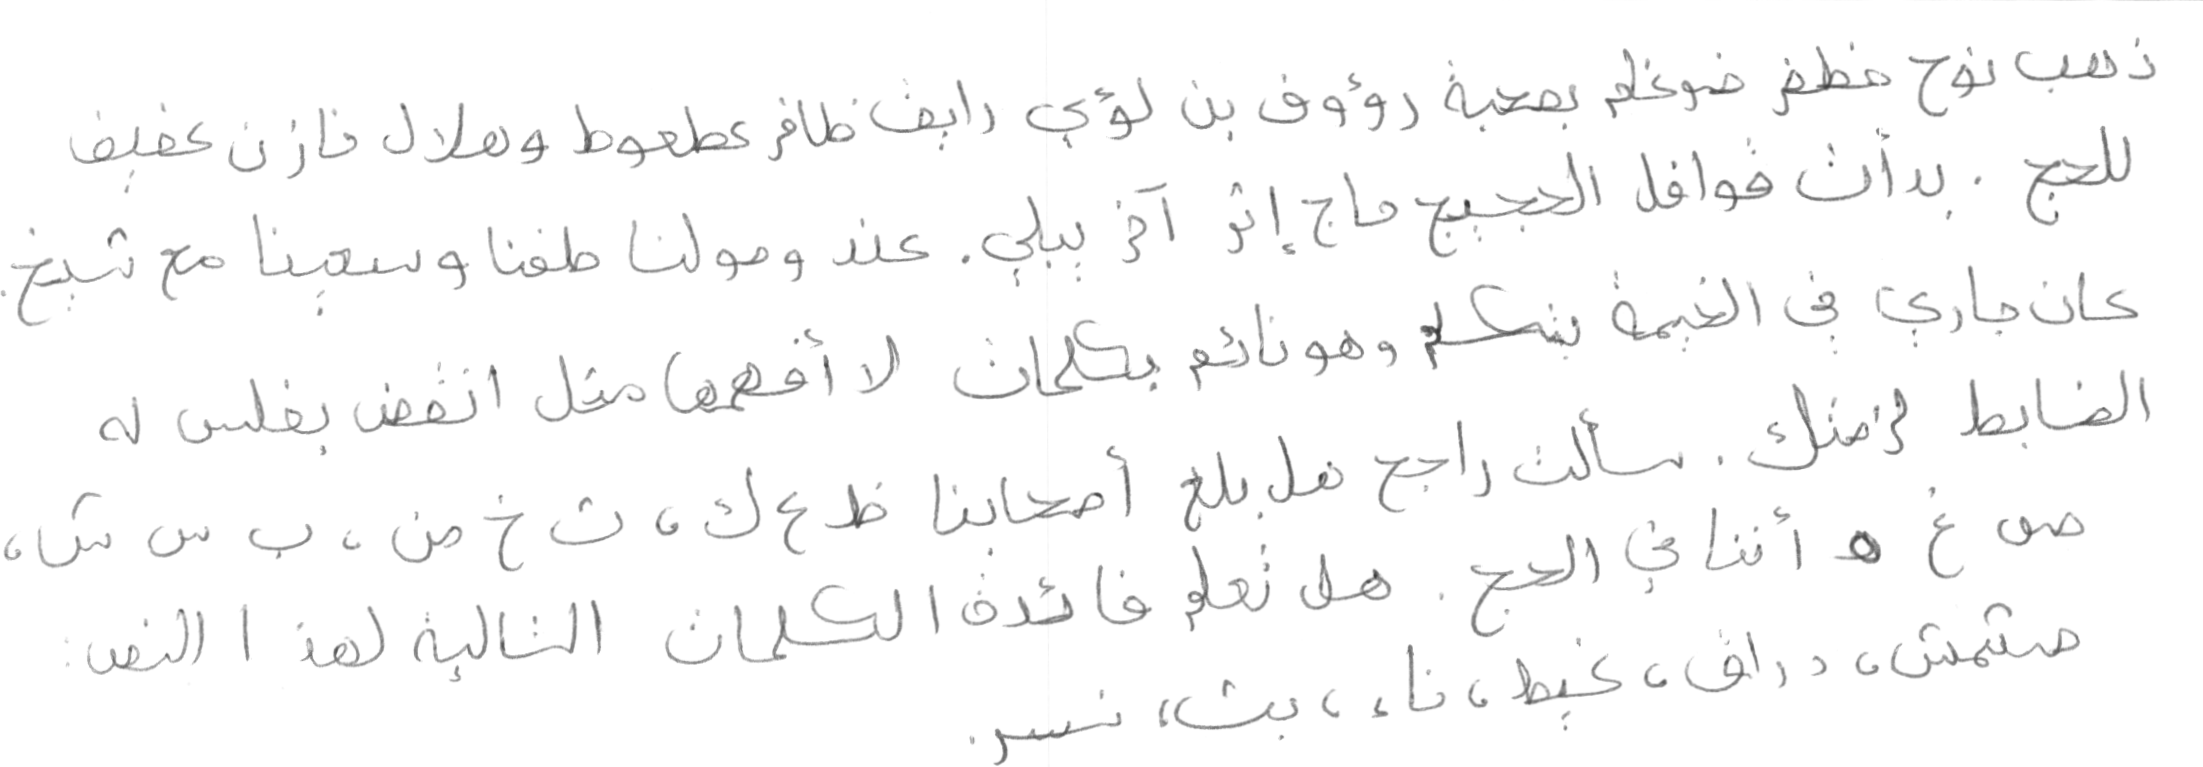 ذهب نوح مظفر ضوغلم بصحبة رؤوف بن لؤي رايق ظافر عطعوط وهلال مازن عفيف
للحج. بدأت قوافل الحجيج حاج إثر آخر يبلي. عند وصولنا طفنا وسعينا مع شيخ.
كان جاري في الخيمة يتكلم وهو نائم بكلمات لا أفهمها مثل انقض بغلس له
الضابط لزمتك. سألت راجح هل بلغ أصحابنا ظ ع ك، ث خ ض، ب س ش،
ص غ ه أننا في الحج. هل تعلم فائدة الكلمات التالية لهذا النص:
مشمش، دراق، غيط، ناء، بث، نسر.